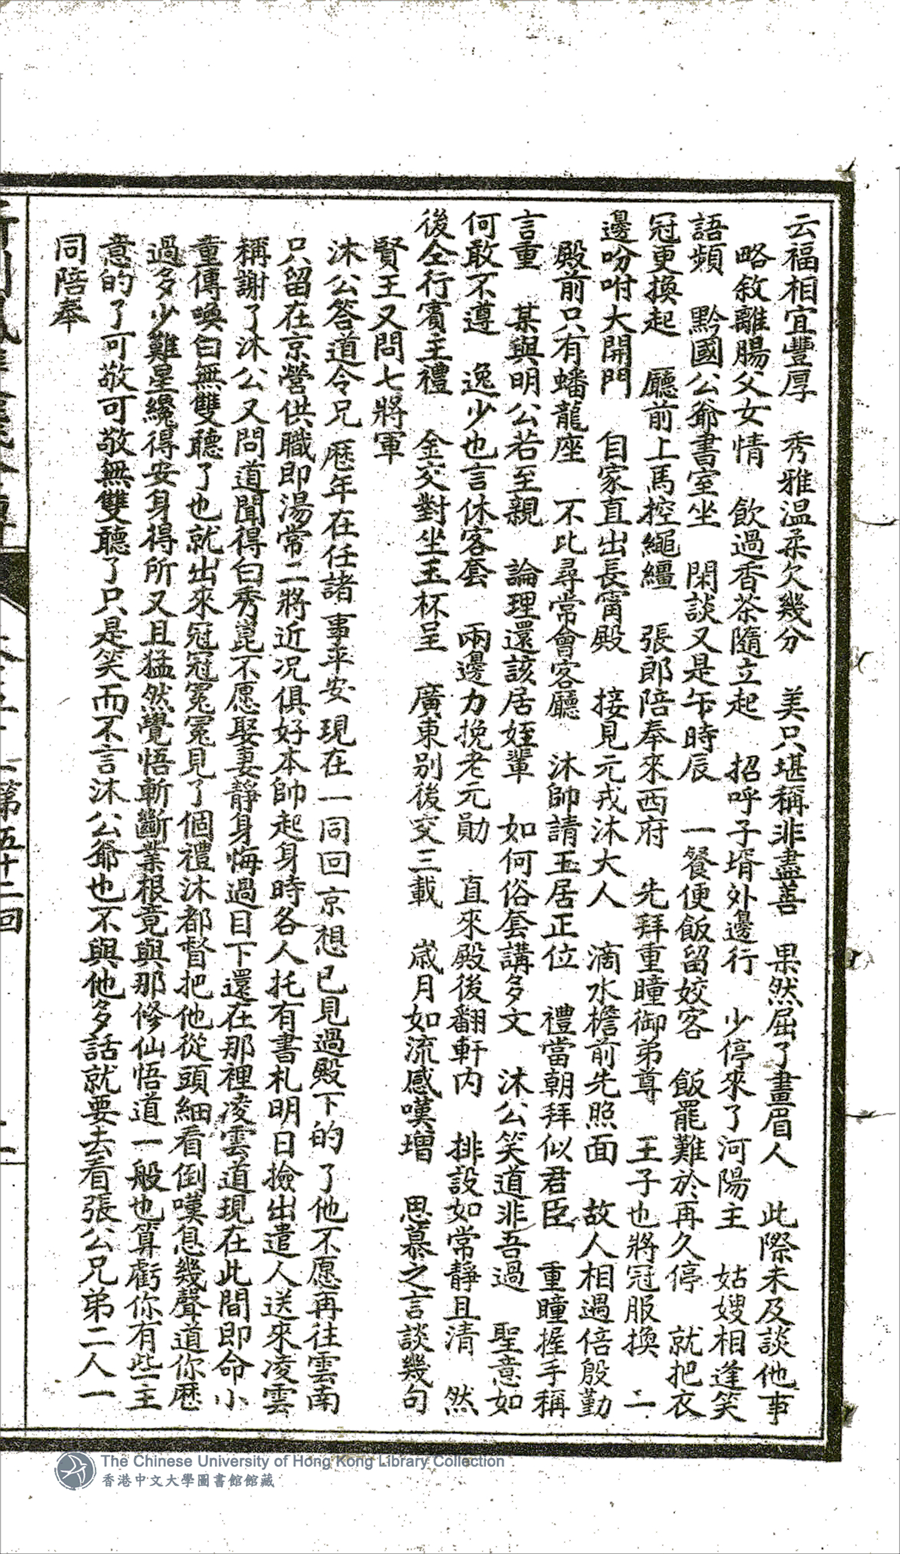 云福相宜豐厚　秀雅温柔欠幾分　美只堪稱非盡善　果然屈了畫眉人　此際未及談他事
略敘離腸父女情　飲過香茶隨立起　招呼子壻外邊行　少停來了河陽主　姑嫂相逢笑
語頻　黔國公爺書室坐　閑談又是午時辰　一餐便飯留姣客　飯罷難於再久停　就把衣
冠更換起　廳前上馬控繩繮　張郎陪奉來西府　先拜重瞳御弟尊　王子也將冠服換　二
邊吩咐大開門　自家直出長甯殿　接見元戎沐大人　滴水檐前先照面　故人相遇倍殷勤
殿前只有蟠龍座　不比尋常會客廳　沐帥請王居正位　禮當朝拜似君臣　重瞳握手稱
言重　某與明公若至親　論理還該居姪輩　如何俗套講多文　沐公笑道非吾過　聖意如
何敢不遵　逸少也言休客套　兩邊力挽老元勛　直來殿後翻軒内　排設如常靜且清　然
後仝行賓主禮　金交對坐玉杯呈　廣東别後交三載　嵗月如流感嘆增　思慕之言談幾句
賢王又問七將軍
沐公答道令兄歷年在任諸事平安現在一同回京想已見過殿下的了他不愿再往雲南
只留在京營供職即湯常二將近况俱好本帥起身時各人托有書札明日撿出遣人送來凌雲
稱謝了沐公又問道聞得白秀崑不愿娶妻靜身悔過目下還在那裡凌雲道現在此間即命小
童傳喚白無雙聽了也就出來冠冠冕冕見了個禮沐都督把他從頭細看倒嘆息幾聲道你歷
過多少難星纔得安身得所又且猛然覺悟斬斷業根竟與那修仙悟道一般也算虧你有些主
意的了可敬可敬無雙聽了只是笑而不言沐公爺也不與他多話就要去看張公兄弟二人一
同陪奉
第五十二回
The Chinese University of Hong Kong Library Collection
香港中文大學圖書館館藏